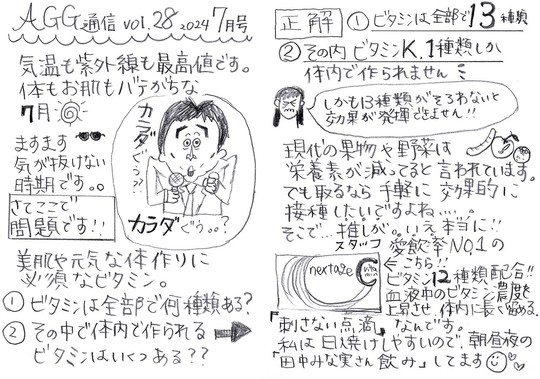 AGG通信 vol.28 2024 7月号
気温も紫外線も最高値です。
体もお肌もバテがちな
7月
ますます
気が抜けない
時期です。。
さてここで
問題です!!
カラダ
ぐぅ??
カラダぐぅ。。?
美肌や元気な体作りに
必須なビタミン。
① ビタミンは全部で何種類ある?
② その中で体内で作られる
ビタミンはいくつある??
正解 ① ビタミンは全部で13種類
② その内 ビタミンK、1種類しか
体内で作られません
しかも13種類がそろわないと
効果が発揮できません!!
現代の果物や野菜は
栄養素が減ってると言われています。
でも取るなら手軽に効果的に
接種したいですよね....。
そこで...推しが。いえ本当に!!
スタッフ愛飲率NO.1の
←こちら!!
nextage
C
vitamin
ビタミン12種類配合!!
血液中のビタミン濃度を
上昇させ、体内に長く留める、
「刺さない点滴」なんです。
私は日焼けしやすいので、朝昼夜の
「田中みな実さん飲み」してます